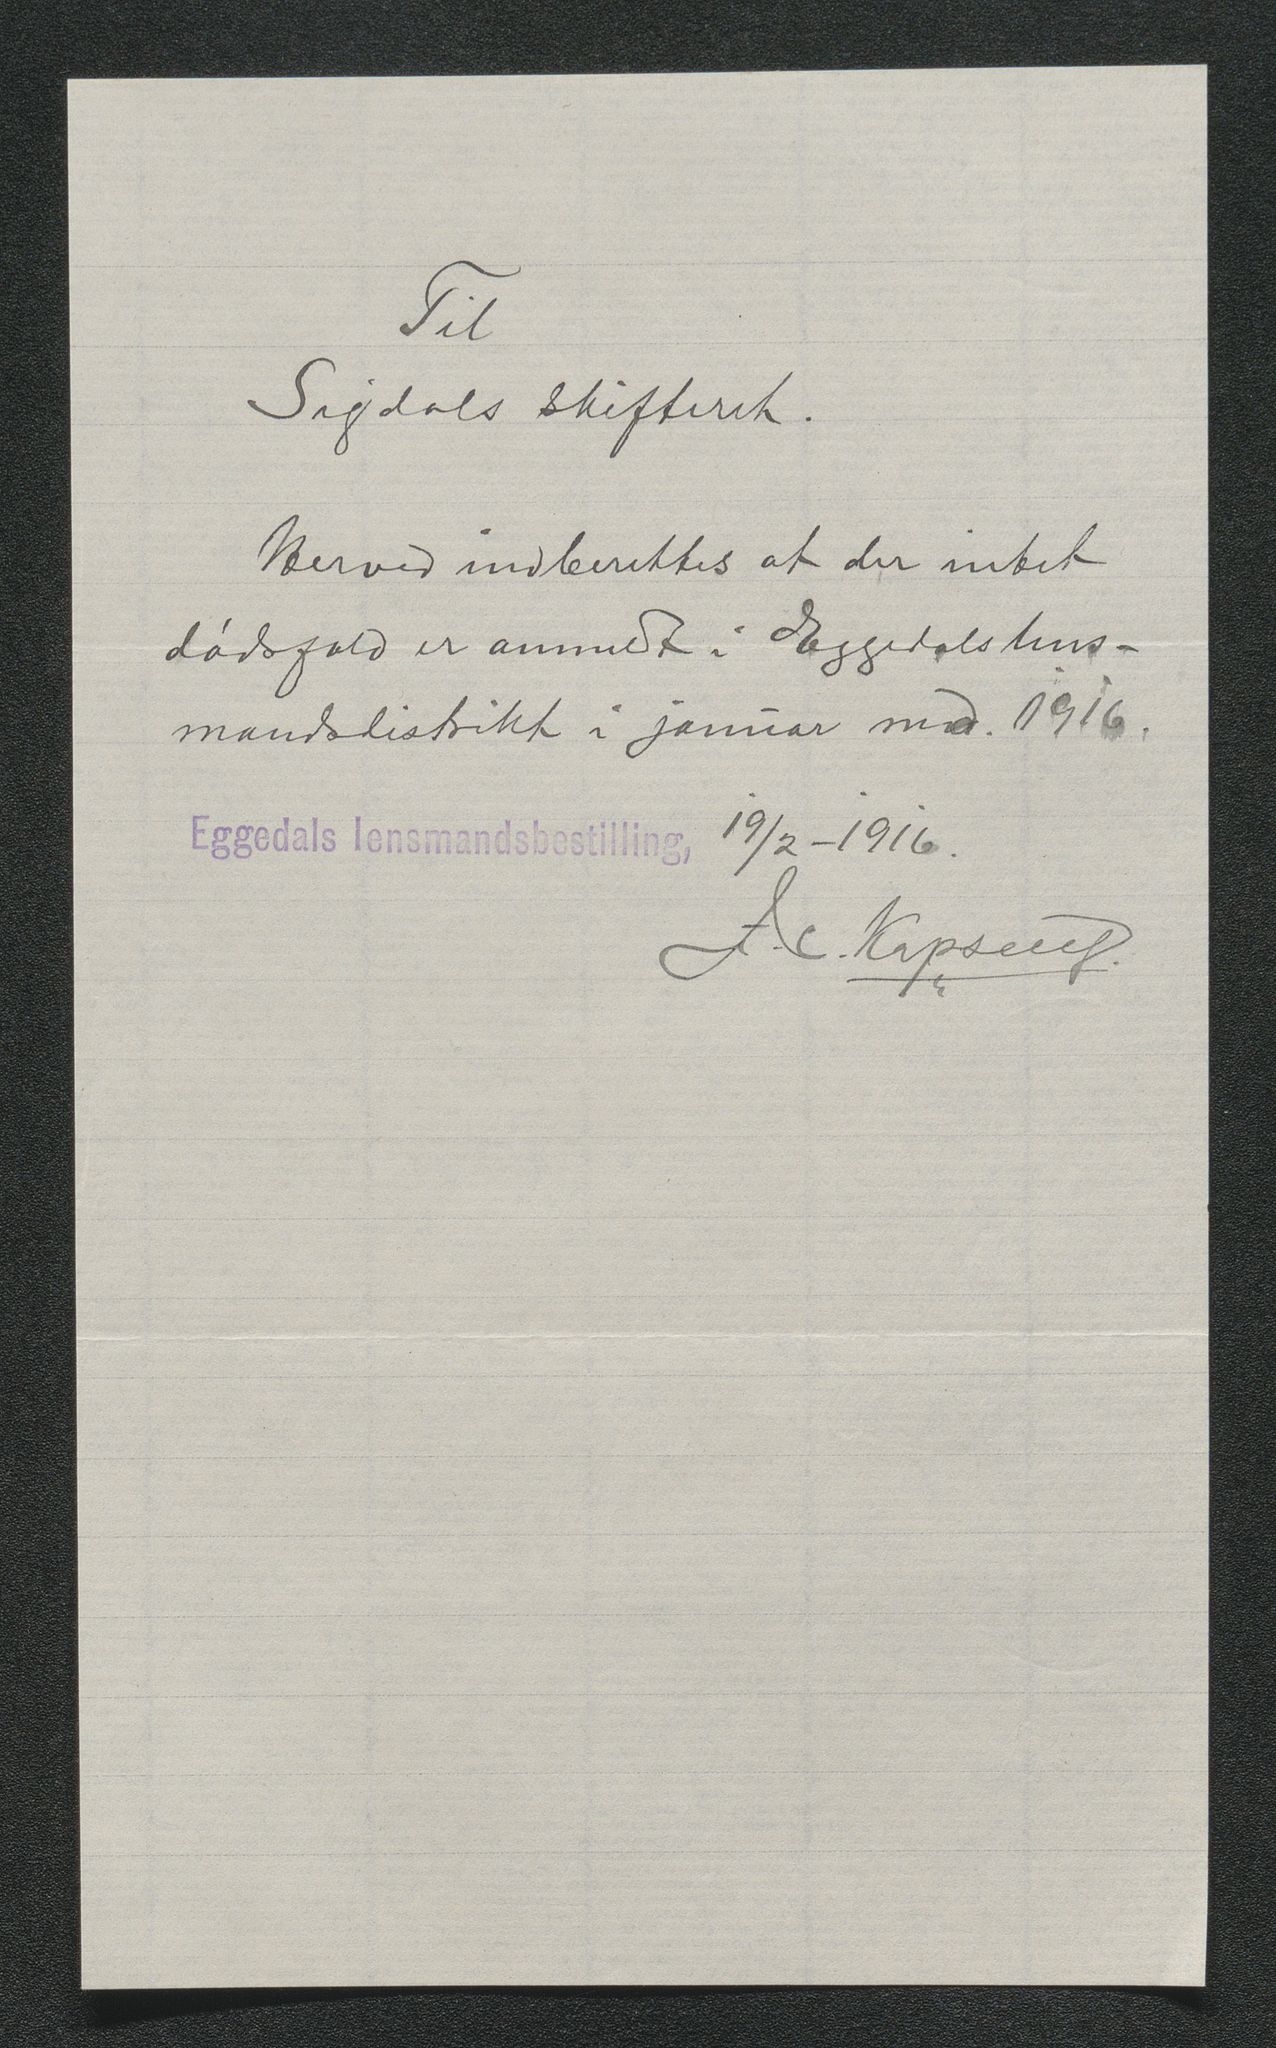 Til
Sigdals skifteret.
Herved indberettes at der intet
dødsfald er anmeldt i Eggedals lens-
mandsdistrikt i januar md. 1916.
Eggedals lensmandsbestilling, 19/2 - 1916.
C. Kopseng.